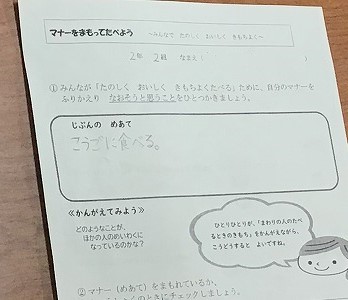 マナーをまもってたべよう　～みんなで　たのしく　おいしく　きもちよく～
2年　2組　なまえ（　　　）
①みんなが「たのしく　おいしく　きもちよくたべる」ために、自分のマナーを
ふりかえり　なおそうと思うことをひとつかきましょう。
じぶんの　めあて
こうごに食べる。
≪かんがえてみよう≫
どのようなことが、
ほかの人のめいわくに
なっているのかな？
ひとりひとりが、「まわりの人のたべ
るときのきもち」をかんがえながら、
こうどうすると　よいですね。
②マナー（めあて）をまもれているか、
のときにチェックしましょう。